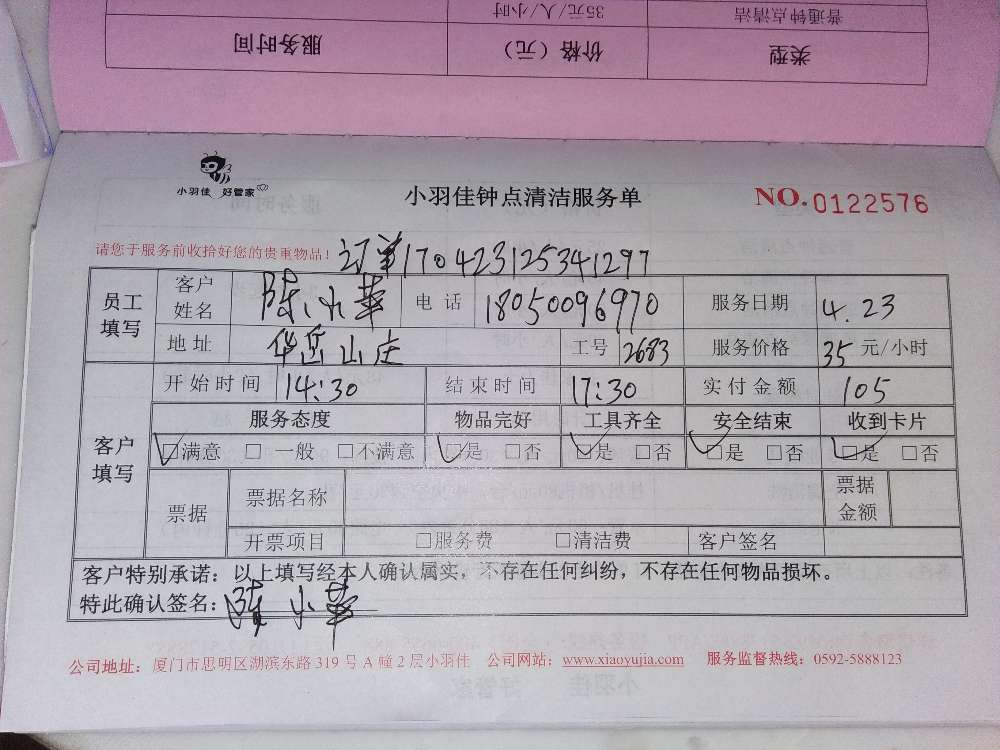 普通钟点清洁 35元/人/小时
类型 价格（元） 服务时间
小羽佳 好管家
小羽佳钟点清洁服务单
NO.0122576
请您于服务前收拾好您的贵重物品！ 订单170423125341297
员工填写 客户姓名 陈小華 电话 18050096970 服务日期 4.23
地址 华岳山庄 工号 2683 服务价格 35 元/小时
客户填写 开始时间 14:30 结束时间 17:30 实付金额 105
服务态度 物品完好 工具齐全 安全结束 收到卡片
☑满意 □一般 □不满意 ☑是 □否 ☑是 □否 ☑是 □否 ☑是 □否
票据 票据名称 票据金额
开票项目 □服务费 □清洁费 客户签名
客户特别承诺：以上填写经本人确认属实，不存在任何纠纷，不存在任何物品损坏。
特此确认签名：陈小華
公司地址：厦门市思明区湖滨东路319号A幢2层小羽佳 公司网站：www.xiaoyujia.com 服务监督热线：0592-5888123